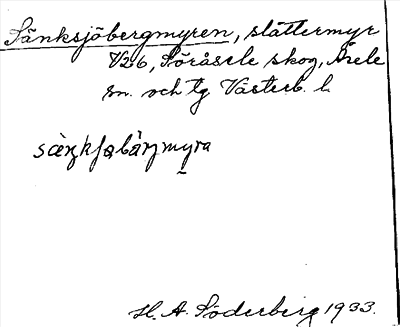 Sänksjöbergmyren, slåttermyr
V26, Söråsele skog, Åsele
sn. och tg Västerb. l.
sàŋkʃǝbæ̀rjmyra
H. A. Söderberg 1933.